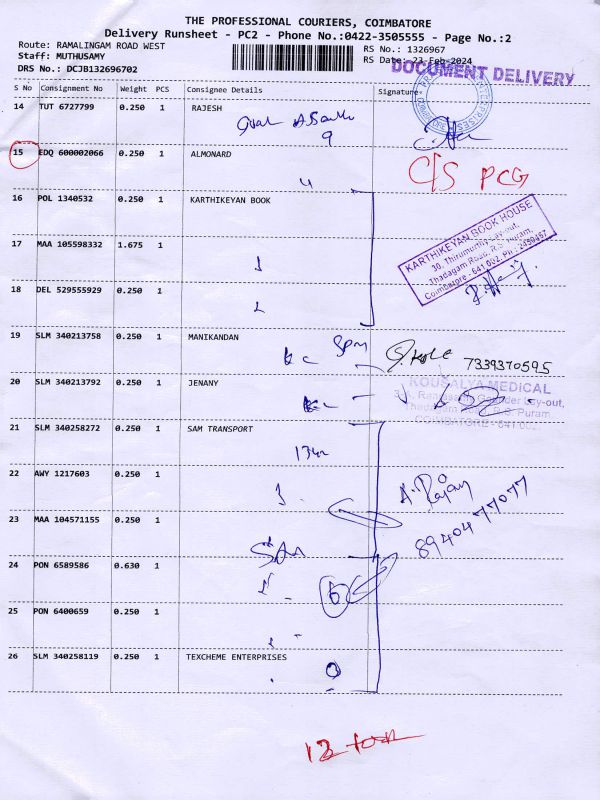 THE PROFESSIONAL COURIERS, COIMBATORE
Delivery Runsheet - PC2 - Phone No.:0422-3505555 - Page No.:2
Route: RAMALINGAM ROAD WEST
RS No.: 1326967
Staff: MUTHUSAMY
RS Date: 23-Feb-2024
DRS No.: DCJB132696702
DOCUMENT DELIVERY
S No Consignment No Weight PCS Consignee Details Signature
14 TUT 6727799 0.250 1 RAJESH
9
15 EDQ 600002066 0.250 1 ALMONARD
C/S PCG
16 POL 1340532 0.250 1 KARTHIKEYAN BOOK
KARTHIKEYAN BOOK HOUSE
30, Thirumurthy Lay-out,
Thadagam Road, R.S. Puram,
Coimbatore - 641 002. Ph : 2450457
17 MAA 105598332 1.675 1
18 DEL 529555929 0.250 1
19 SLM 340213758 0.250 1 MANIKANDAN
7339370595
20 SLM 340213792 0.250 1 JENANY
KOUSALYA MEDICAL
Lay-out,
Thadagam Road, R.S. Puram,
COIMBATORE - 641 002.
21 SLM 340258272 0.250 1 SAM TRANSPORT
22 AWY 1217603 0.250 1
A. Rajan
8940477077
23 MAA 104571155 0.250 1
24 PON 6589586 0.630 1
6
25 PON 6400659 0.250 1
26 SLM 340258119 0.250 1 TEXCHEME ENTERPRISES